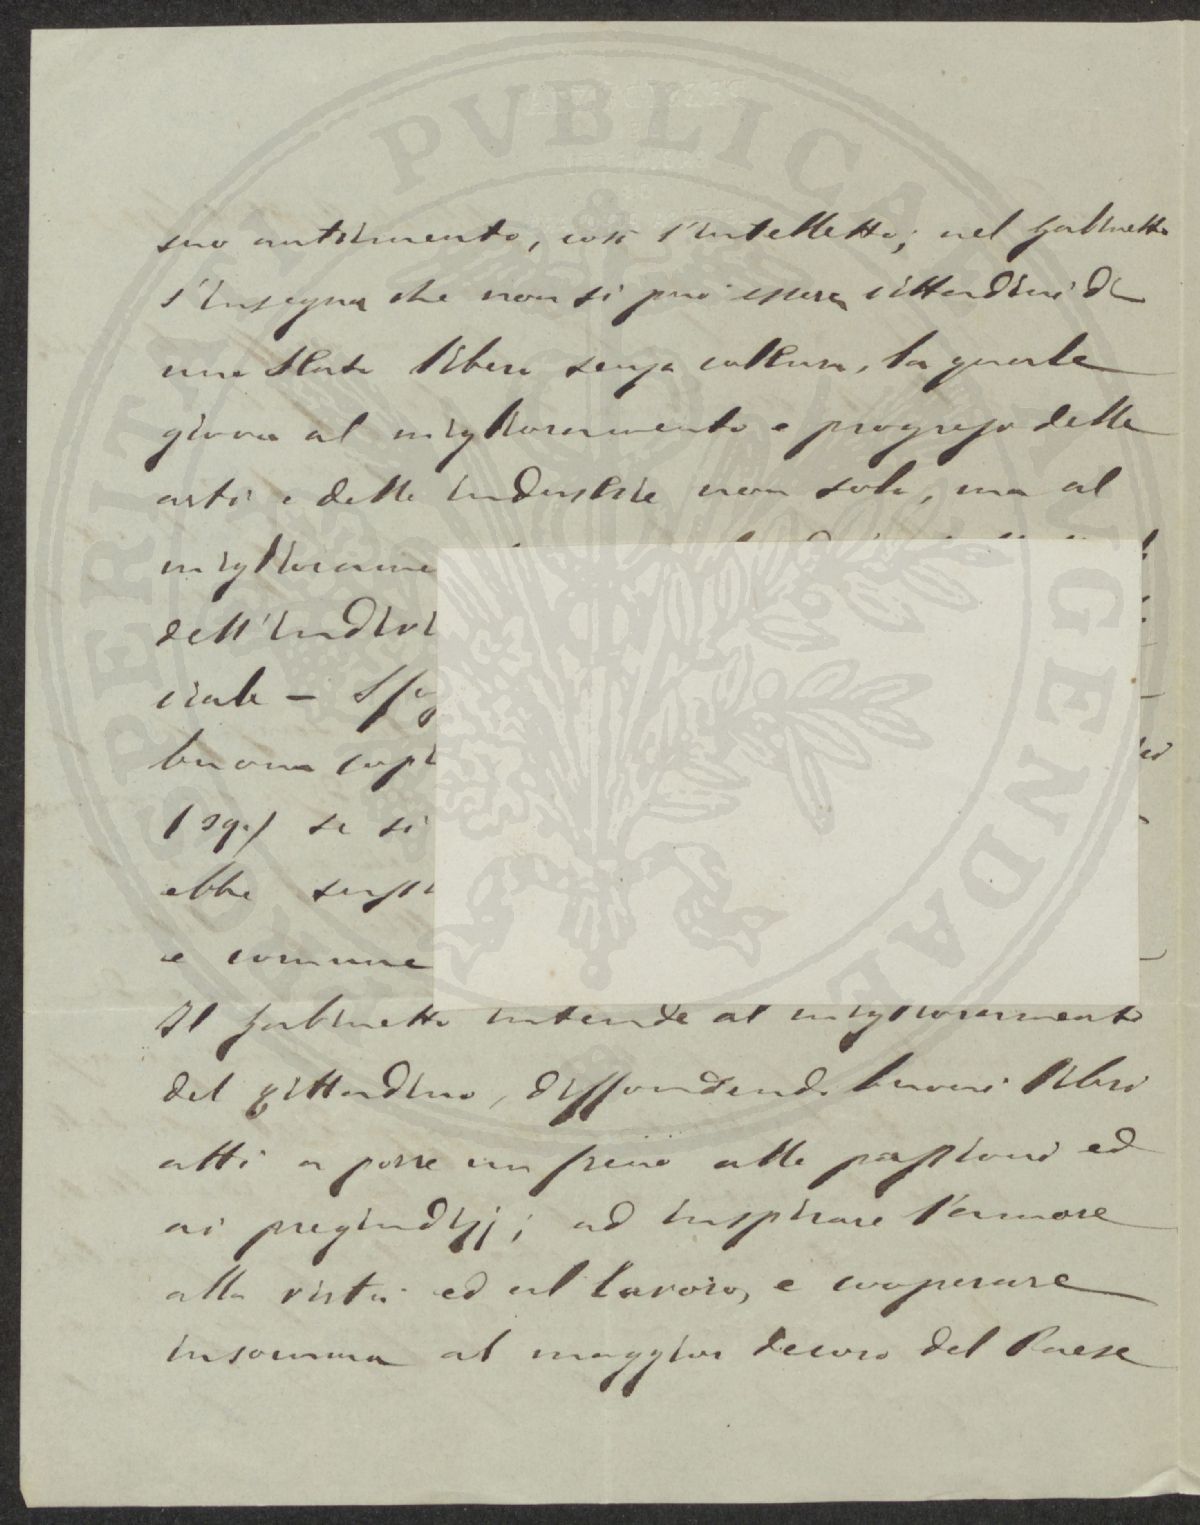 suo nutrimento, così l'intelletto; nel Gabinetto
s'insegna che non si può essere cittadini di
uno Stato libero senza coltura, la quale
giova al miglioramento e progresso delle
arti e delle industrie non solo, ma al
migliorame
dell'indivi
ciale –
buona
se si
ebbe
e comune
Il Gabinetto intende al miglioramento
del cittadino, diffondendo buoni libri
atti a porre un freno alle passioni ed
ai pregiudizj; ad inspirare l'amore
alla virtù ed al lavoro, e cooperare
insomma al maggior decoro del Paese
PVBLICAE
PROSPERITATI
AVGENDAE